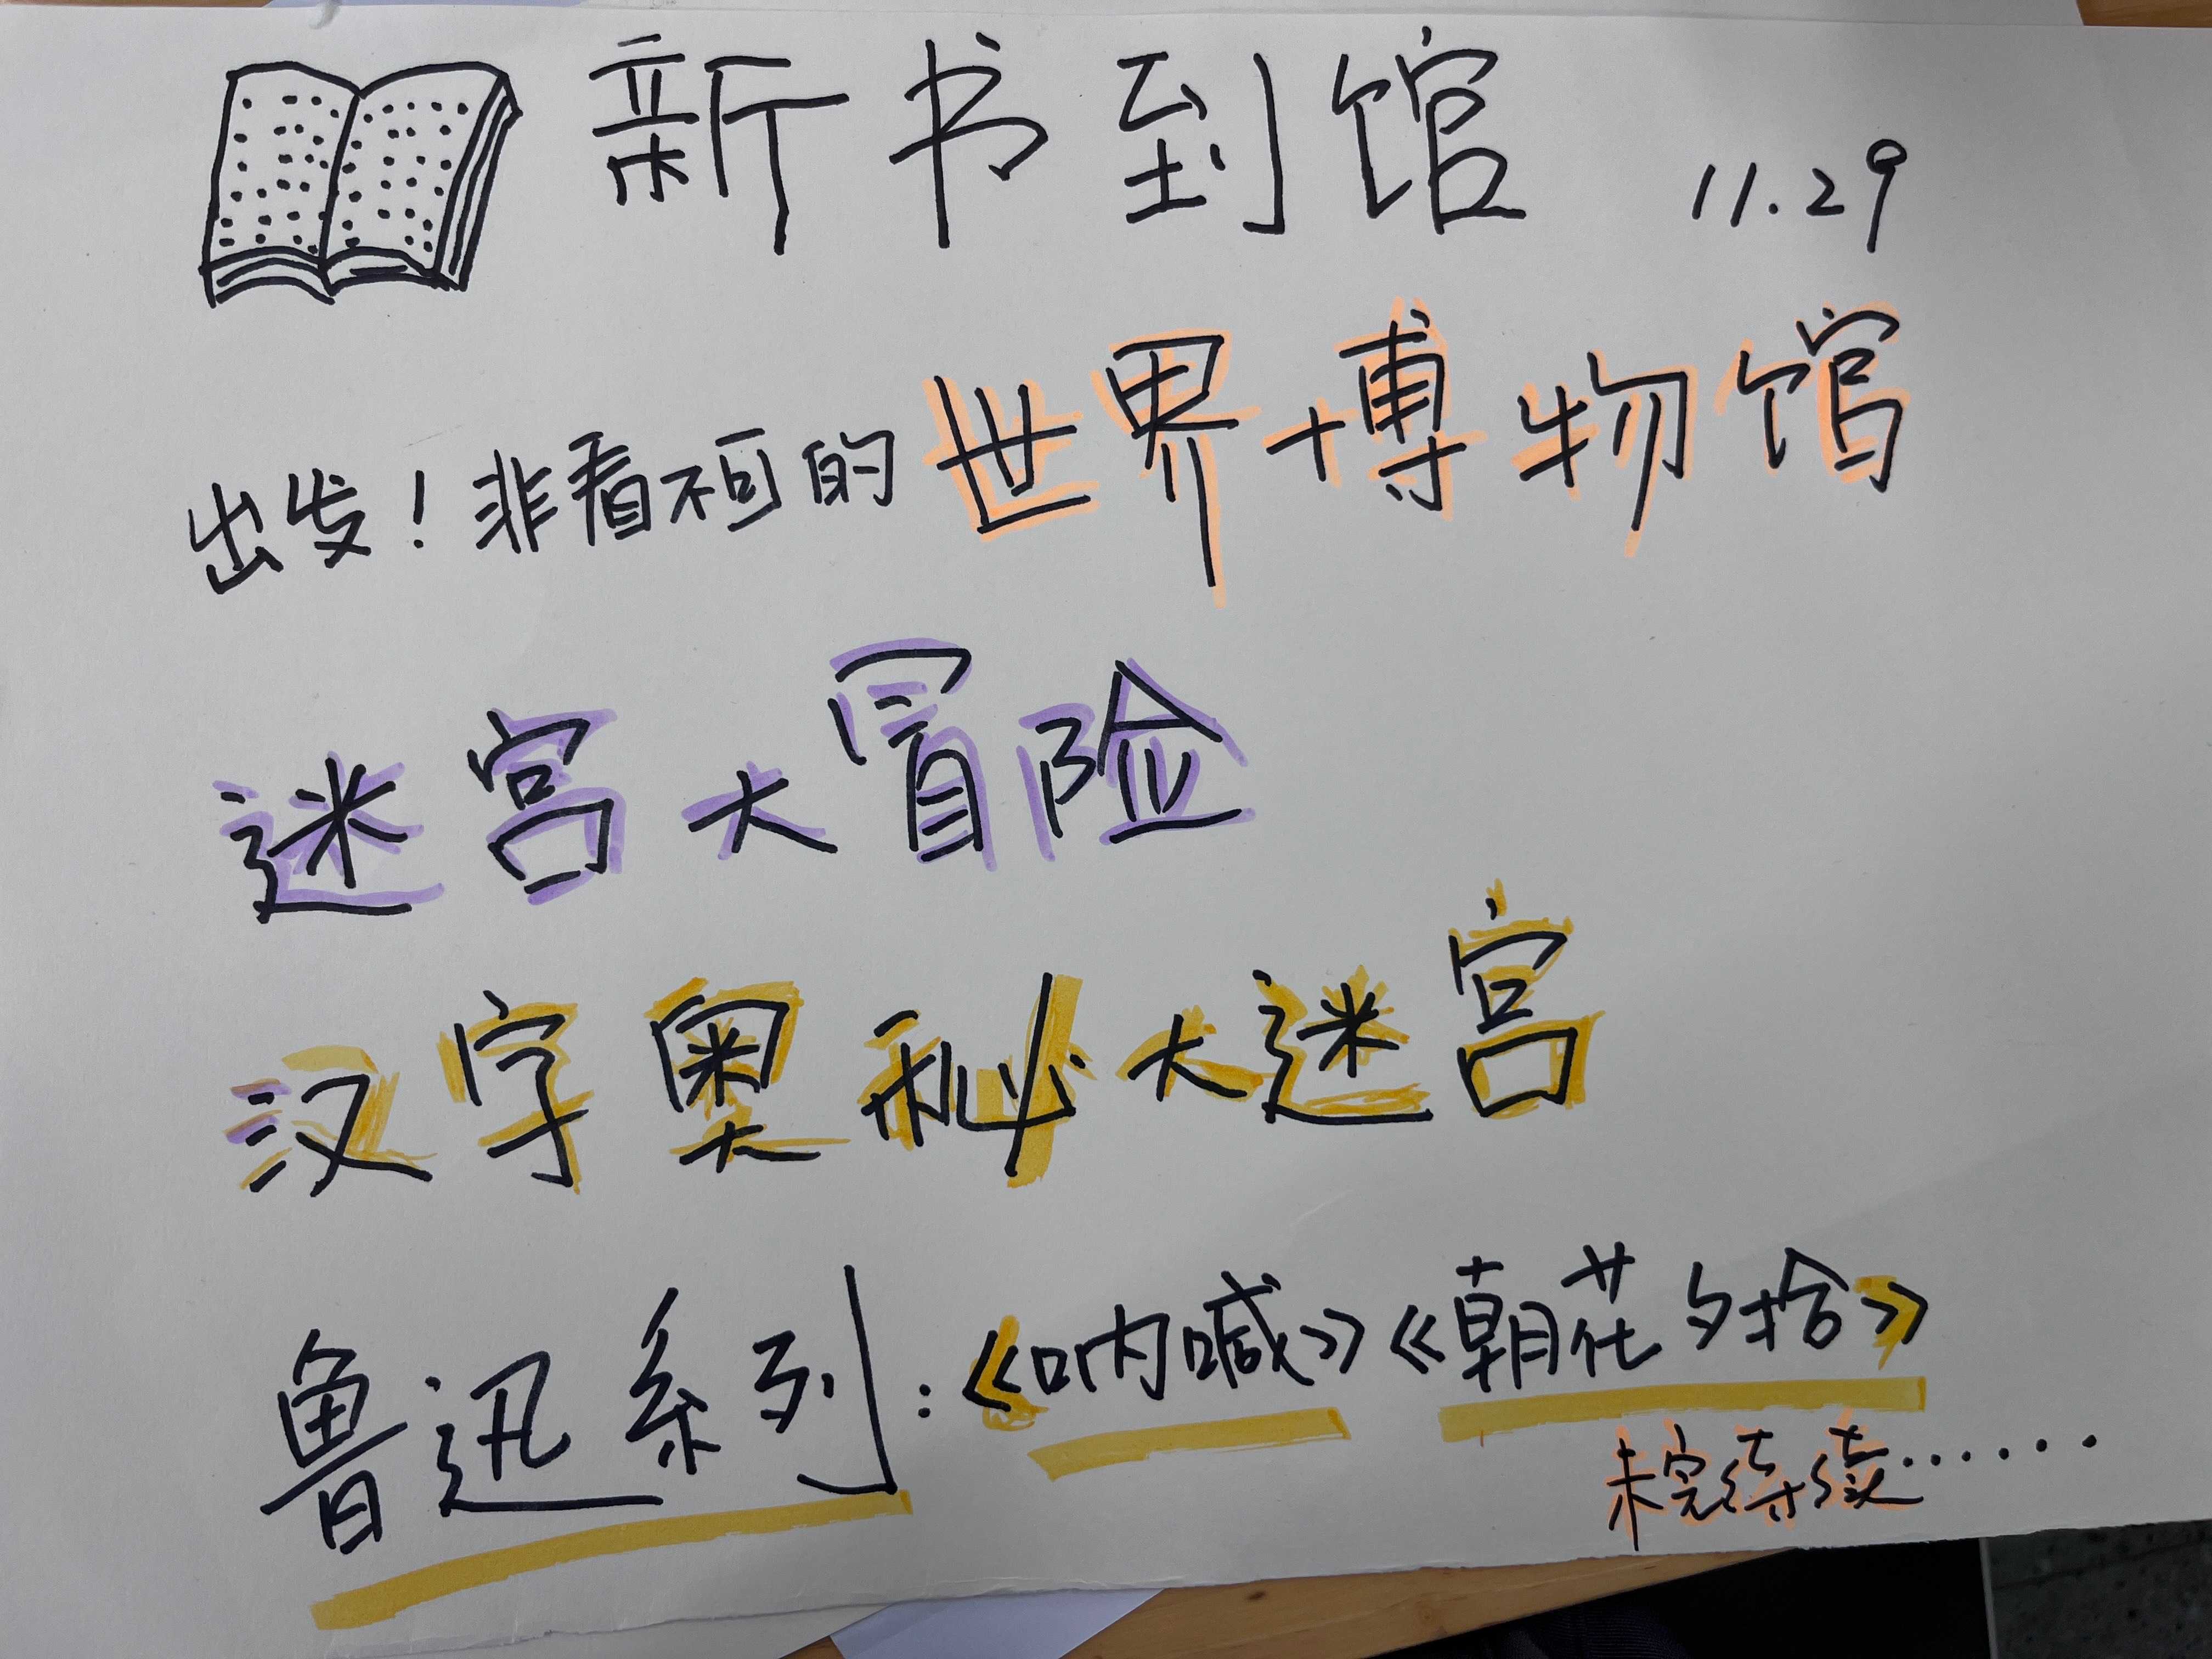 新书到馆 11.29
出发！非看不可的世界博物馆
迷宫大冒险
汉字奥秘大迷宫
鲁迅系列：《呐喊》《朝花夕拾》
未完待续……